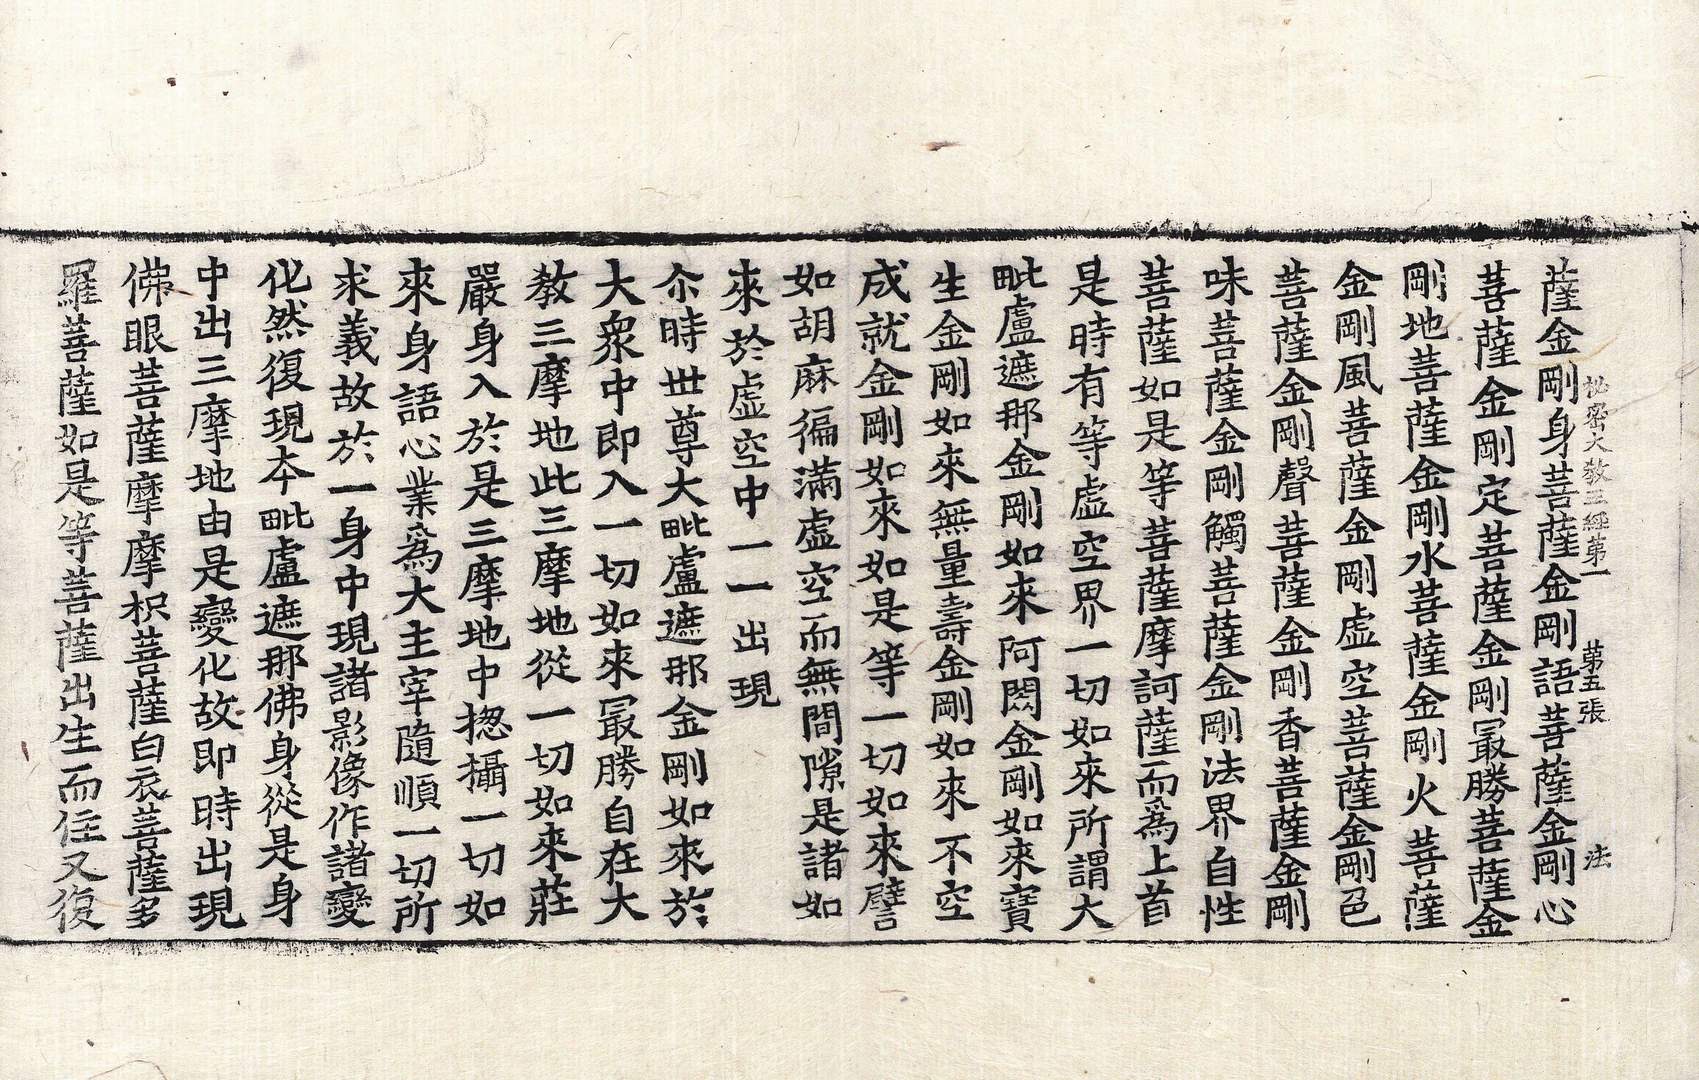 秘密大教王經第一　第五張　法
薩金剛身菩薩金剛語菩薩金剛心
菩薩金剛定菩薩金剛㝡勝菩薩金
剛地菩薩金剛水菩薩金剛火菩薩
金剛風菩薩金剛虛空菩薩金剛色
菩薩金剛聲菩薩金剛香菩薩金剛
味菩薩金剛觸菩薩金剛法界自性
菩薩如是等菩薩摩訶薩而爲上首
是時有等虛空界一切如來所謂大
毗盧遮那金剛如來阿閦金剛如來寶
生金剛如來無量壽金剛如來不空
成就金剛如來如是等一切如來譬
如胡麻徧滿虛空而無間隙是諸如
來於虛空中一一出現
尒時世尊大毗盧遮那金剛如來於
大衆中即入一切如來㝡勝自在大
敎三摩地此三摩地從一切如來莊
嚴身入於是三摩地中揔攝一切如
來身語心業爲大主宰隨順一切所
求義故於一身中現諸影像作諸變
化然復現夲毗盧遮那佛身從是身
中出三摩地由是變化故即時出現
佛眼菩薩摩摩枳菩薩白衣菩薩多
羅菩薩如是等菩薩出生而住又復